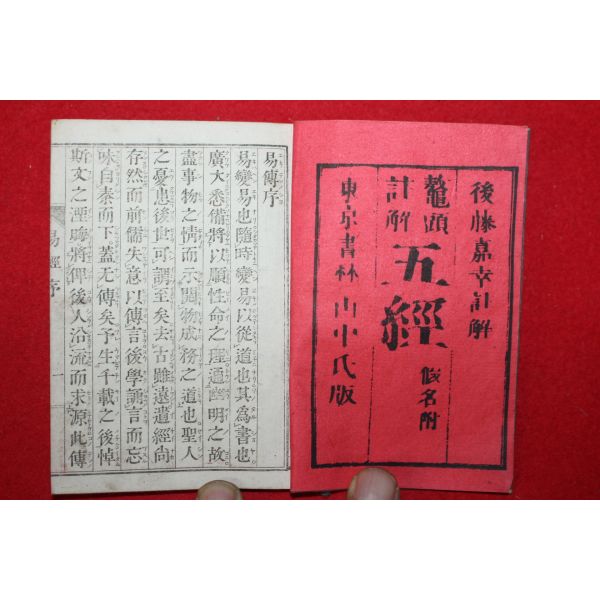 後藤嘉幸訂解
鼇頭
訂解
五經
假名附
東京書林 山中氏版
易傳序
易變易也隨時變易以從道也其爲書也
廣大悉備將以順性命之理通幽明之故
盡事物之情而示開物成務之道也聖人
之憂患後世可謂至矣去古雖遠遺經尙
存然而前儒失意以傳言後學誦言而忘
味自秦而下蓋无傳矣予生千載之後悼
斯文之湮晦將俾後人沿流而求源此傳
易經序
一